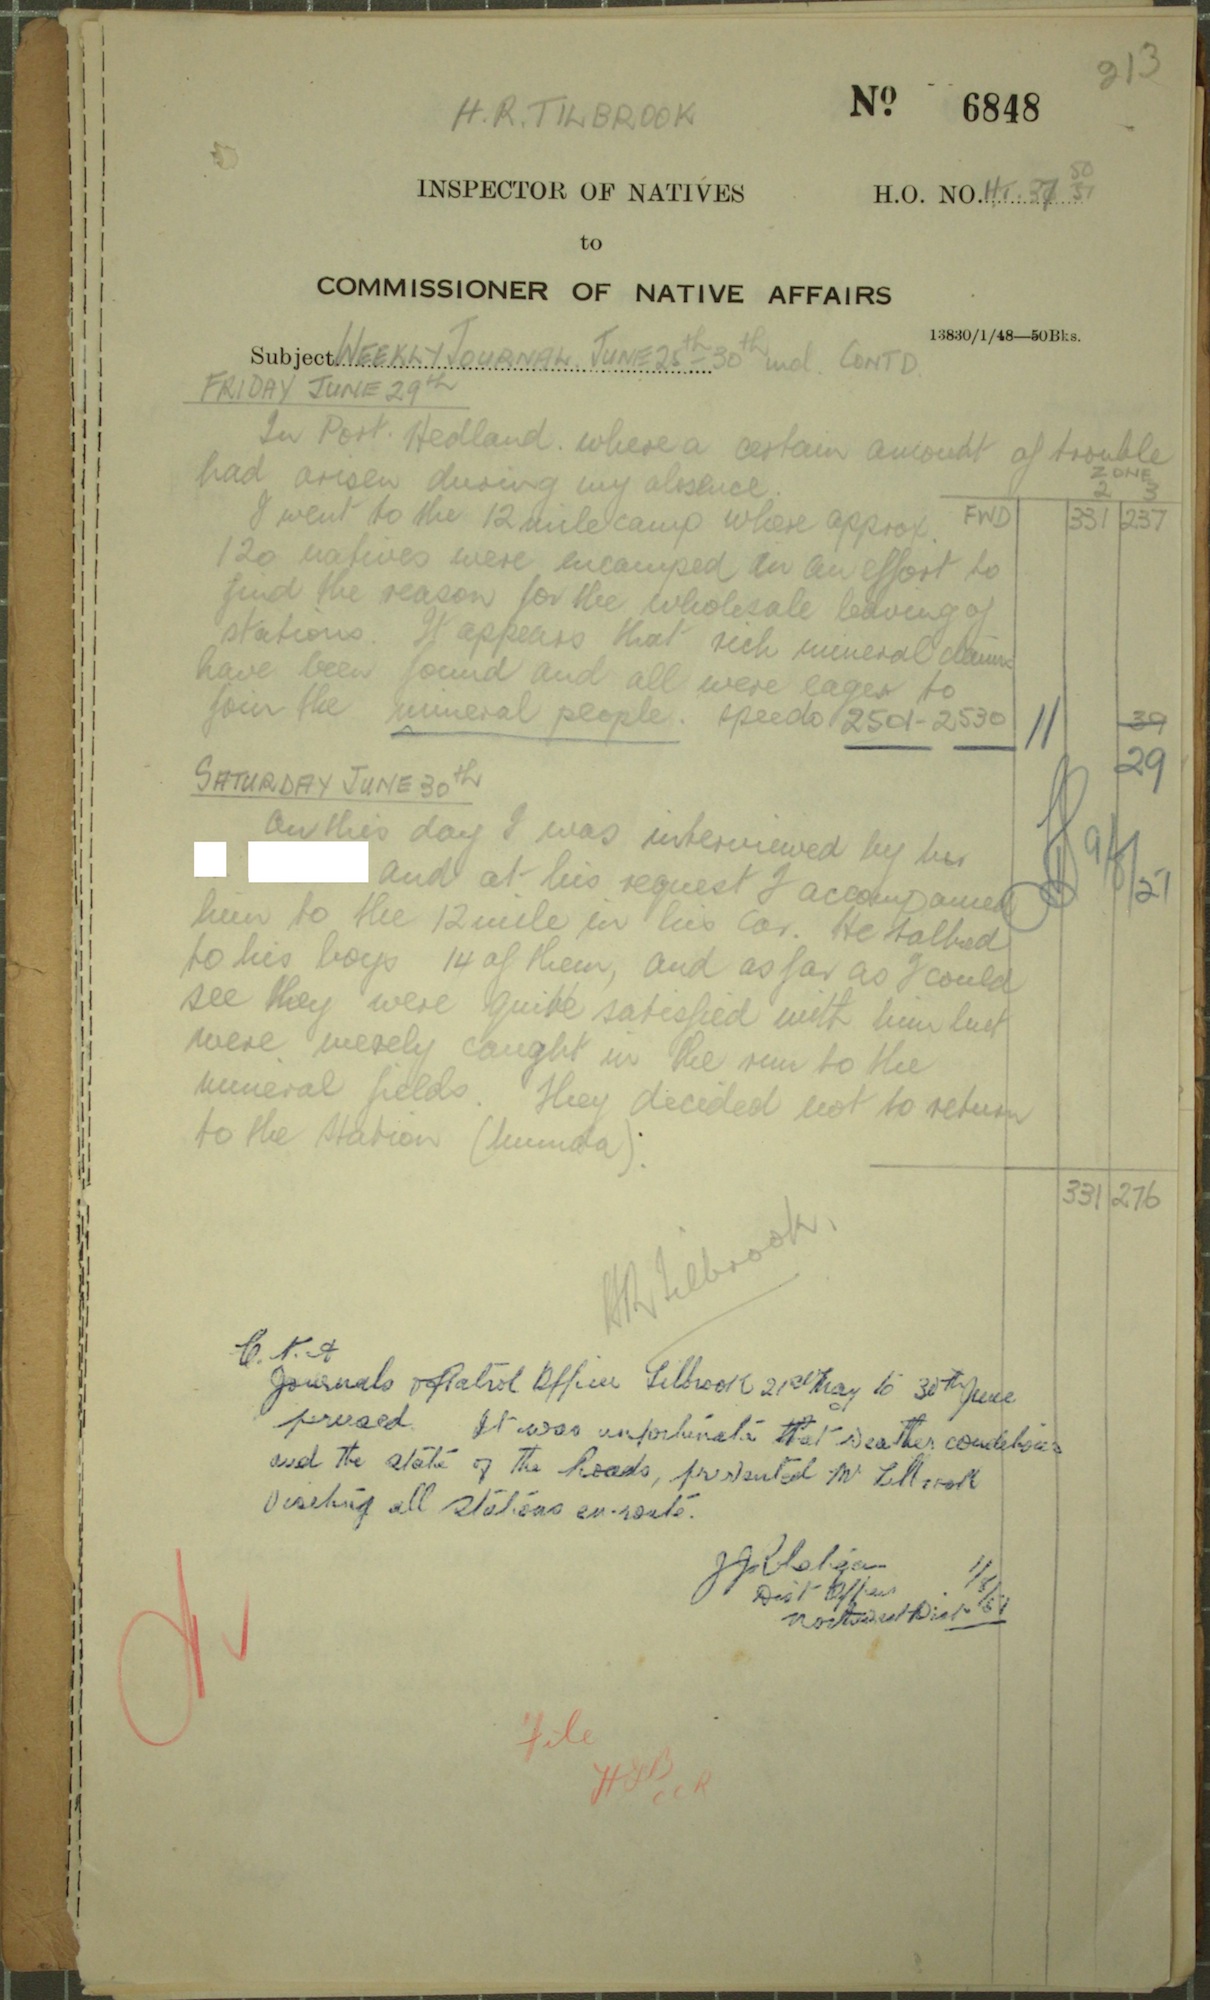 213
H.R. TILBROOK
Nº 6848
INSPECTOR OF NATIVES
H.O. NO. HT. 37
50
51
to
COMMISSIONER OF NATIVE AFFAIRS
13830/1/48—50Bks.
Subject WEEKLY JOURNAL. JUNE 25th – 30th incl. CONTD.
FRIDAY JUNE 29th
In Port. Hedland. where a certain amount of trouble
had arisen during my absence.
ZONE
2 3
I went to the 12 mile camp where approx. FWD 331 237
120 natives were encamped in an effort to
find the reason for the wholesale leaving of
stations. It appears that rich mineral claims
have been found and all were eager to
join the mineral people. speedo 2501 - 2530 39
29
SATURDAY JUNE 30th
On this day I was interviewed by
and at his request I accompanied
him to the 12 mile in his car. He talked
to his boys 14 of them, and as far as I could
see they were quite satisfied with him but
were merely caught in the run to the
mineral fields. They decided not to return
to the Station
331 276
HR Tilbrook.
C.N.A
Journals of Patrol Officer Tilbrook 21st May to 30th June
perused. It was unfortunate that weather conditions
and the state of the Roads, prevented Mr Tilbrook
visiting all stations en-route.
Dist Officer
Northwest Dist
File